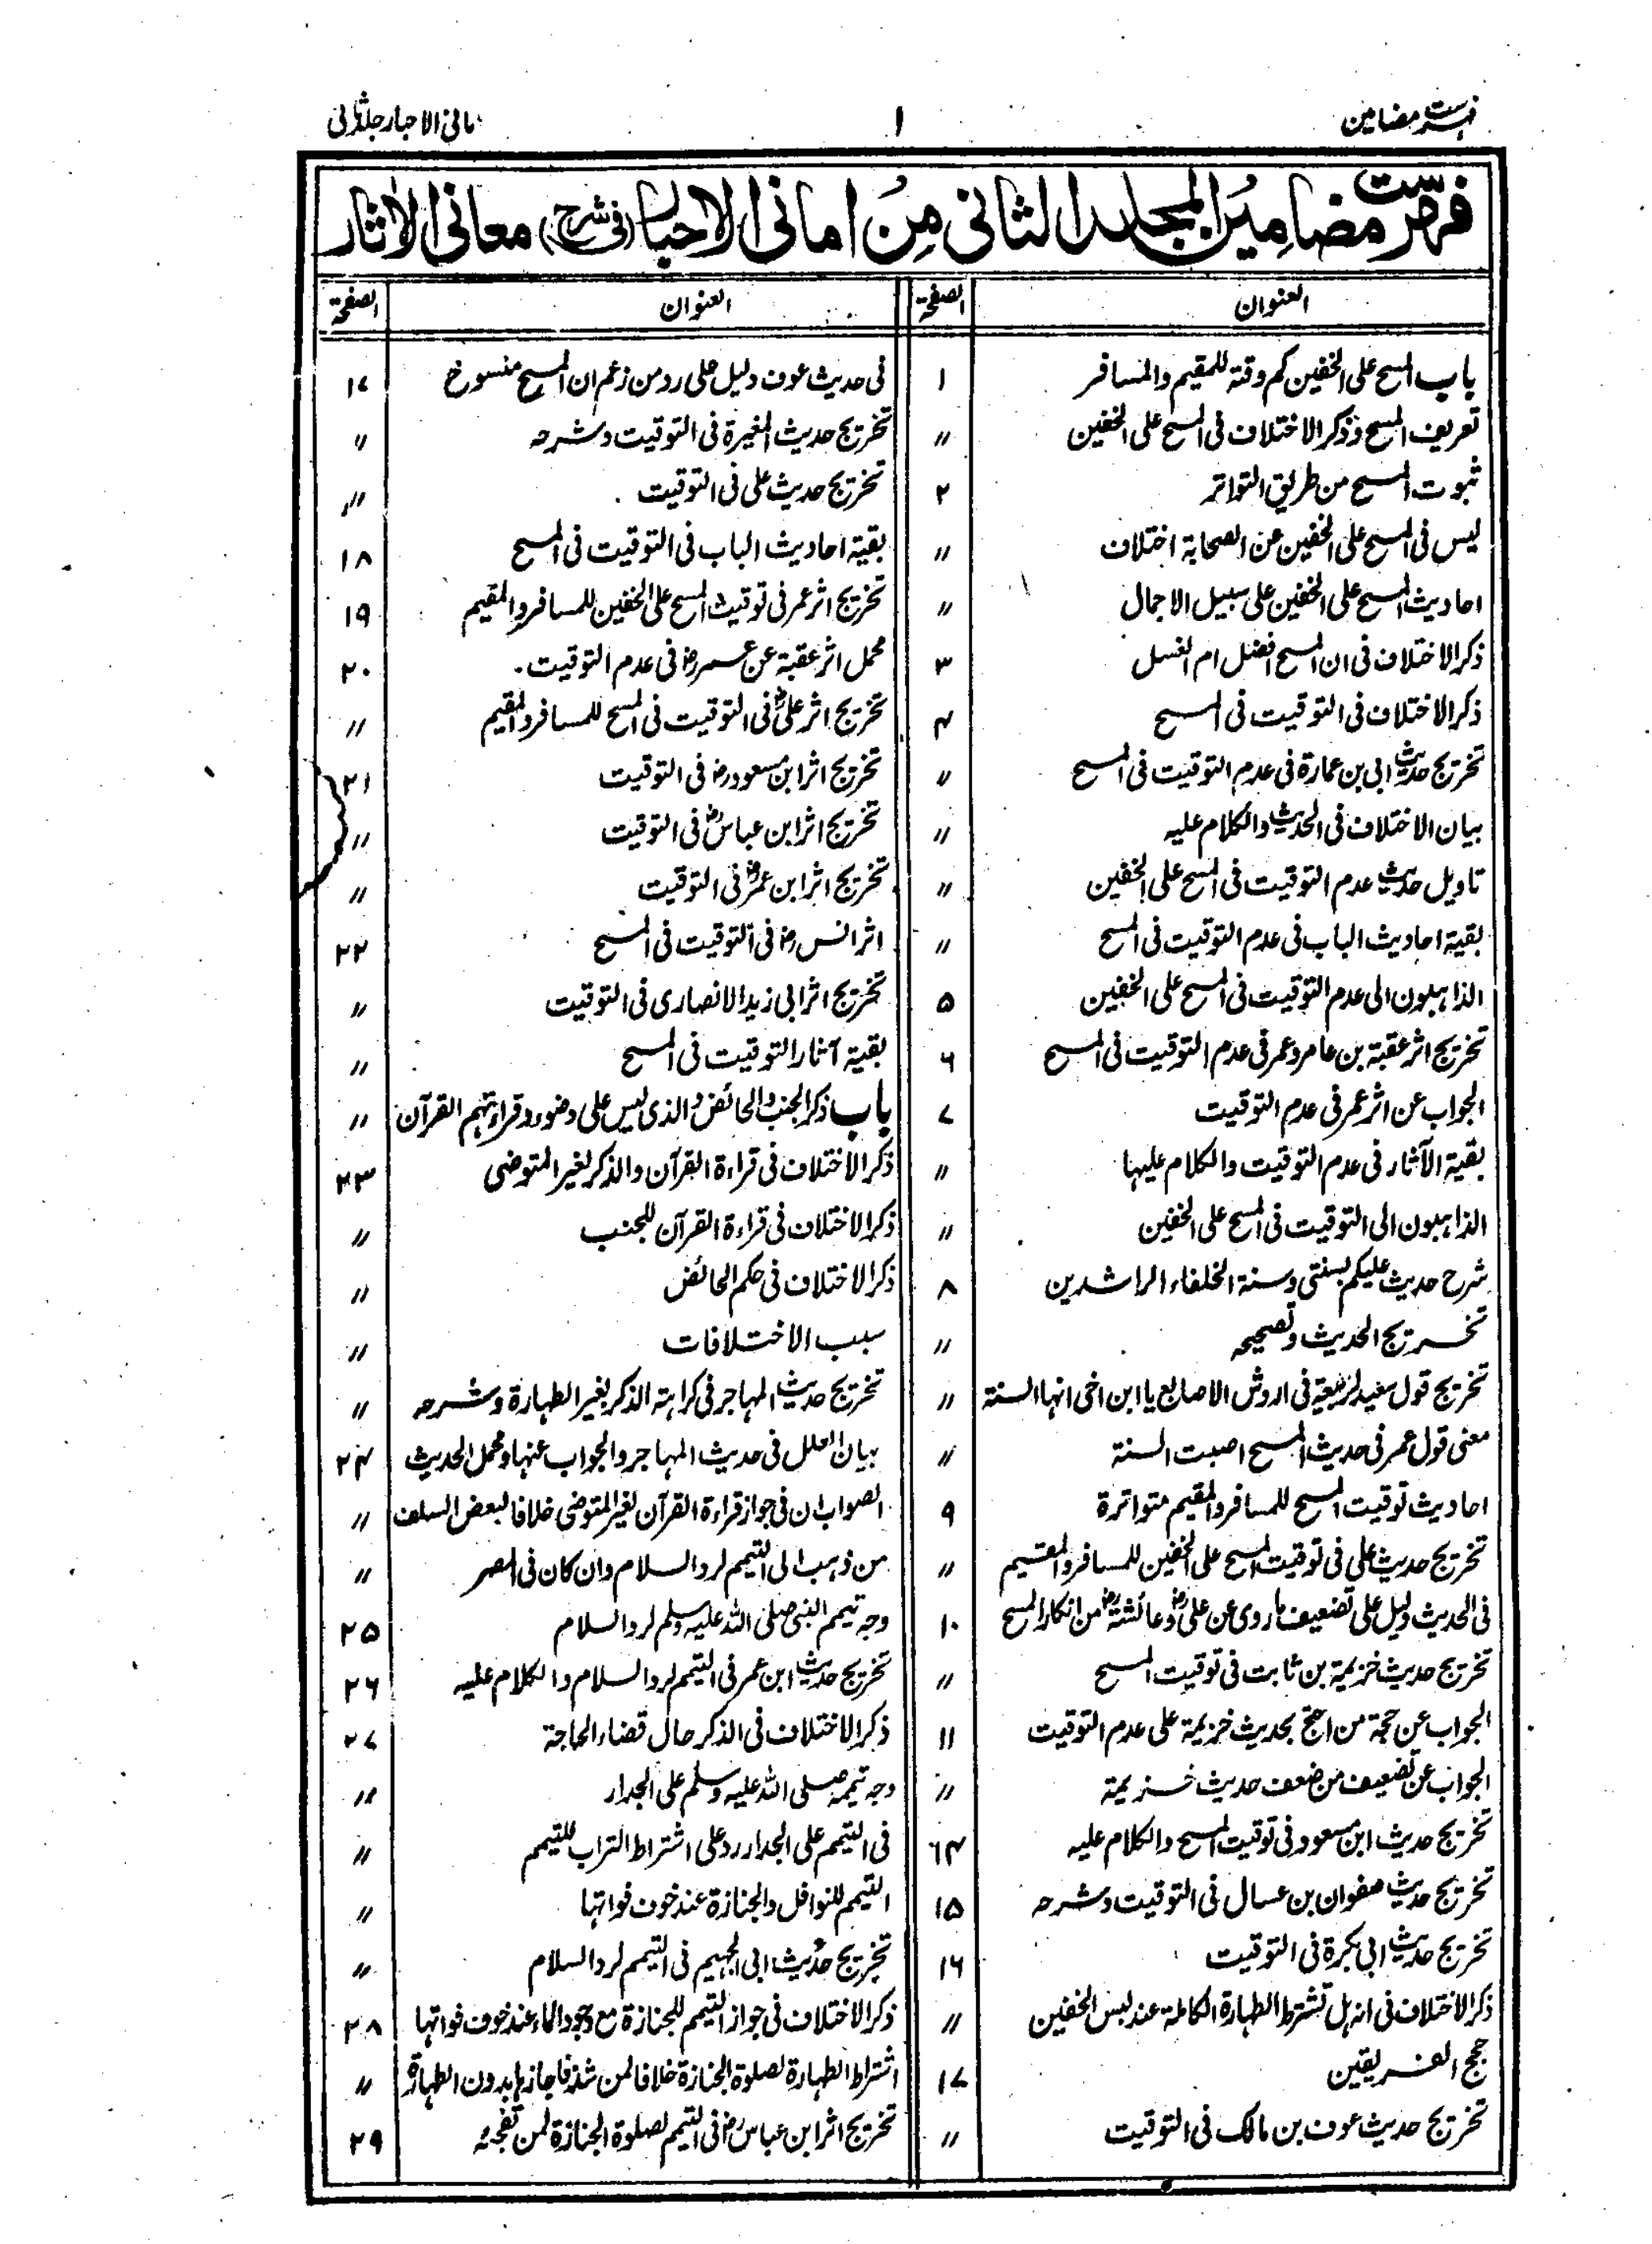 فہرست مضامین
۱
امانی الاحبار جلد ثانی
فهرست مضامین المجلد الثانی من امانی الاحبار (فی شرح) معانی الاثار
العنوان الصفحة
باب المسح علی الخفین کم وقته للمقیم والمسافر ۱
تعریف المسح وذکر الاختلاف فی المسح علی الخفین 〃
ثبوت المسح من طریق التواتر ۲
لیس فی المسح علی الخفین عن الصحابة اختلاف 〃
احادیث المسح علی الخفین علی سبیل الاجمال 〃
ذکر الاختلاف فی ان المسح افضل ام الغسل ۳
ذکر الاختلاف فی التوقیت فی المسح ۴
تخریج حدیث ابی بن عمارة فی عدم التوقیت فی المسح 〃
بیان الاختلاف فی الحدیث والکلام علیه 〃
تاویل حدیث عدم التوقیت فی المسح علی الخفین 〃
بقیة احادیث الباب فی عدم التوقیت فی المسح 〃
الذاہبون الی عدم التوقیت فی المسح علی الخفین ۵
تخریج اثر عقبة بن عامر وعمر فی عدم التوقیت فی المسح ۶
الجواب عن اثر عمر فی عدم التوقیت ۷
بقیة الآثار فی عدم التوقیت والکلام علیہا 〃
الذاہبون الی التوقیت فی المسح علی الخفین 〃
شرح حدیث علیکم بسنتی وسنة الخلفاء الراشدین ۸
تخریج الحدیث وتصحیحه 〃
تخریج قول سعید لربیعة فی اروش الاصابع یا ابن اخی انہا السنة 〃
معنی قول عمر فی حدیث المسح اصبت السنة 〃
احادیث توقیت المسح للمسافر والمقیم متواترة ۹
تخریج حدیث علی فی توقیت المسح علی الخفین للمسافر والمقیم 〃
فی الحدیث دلیل علی تضعیف ما روی عن علیؓ وعائشةؓ من انکار المسح ۱۰
تخریج حدیث خزیمة بن ثابت فی توقیت المسح 〃
الجواب عن حجة من احتج بحدیث خزیمة علی عدم التوقیت ۱۱
الجواب عن تضعیف من ضعف حدیث خزیمة 〃
تخریج حدیث ابن مسعود فی توقیت المسح والکلام علیه ۱۴
تخریج حدیث صفوان بن عسال فی التوقیت وشرحه ۱۵
تخریج حدیث ابی بکرة فی التوقیت ۱۶
ذکر الاختلاف فی انه ہل تشترط الطہارة الکاملة عند لبس الخفین 〃
حجج الفریقین ۱۷
تخریج حدیث عوف بن مالک فی التوقیت 〃
العنوان الصفحة
فی حدیث عوف دلیل علی رد من زعم ان المسح منسوخ ۱۷
تخریج حدیث المغیرة فی التوقیت وشرحه 〃
تخریج حدیث علی فی التوقیت 〃
بقیة احادیث الباب فی التوقیت فی المسح ۱۸
تخریج اثر عمر فی توقیت المسح علی الخفین للمسافر والمقیم ۱۹
محمل اثر عقبة عن عمرؓ فی عدم التوقیت۔ ۲۰
تخریج اثر علیؓ فی التوقیت فی المسح للمسافر والمقیم 〃
تخریج اثر ابن مسعودؓ فی التوقیت ۲۱
تخریج اثر ابن عباسؓ فی التوقیت 〃
تخریج اثر ابن عمرؓ فی التوقیت 〃
اثر انسؓ فی التوقیت فی المسح ۲۲
تخریج اثر ابی زید الانصاری فی التوقیت 〃
بقیة آثار التوقیت فی المسح 〃
باب ذکر الجنب والحائض والذی لیس علی وضوء وقراءتہم القرآن 〃
ذکر الاختلاف فی قراءة القرآن والذکر لغیر المتوضی ۲۳
ذکر الاختلاف فی قراءة القرآن للجنب 〃
ذکر الاختلاف فی حکم الحائض 〃
سبب الاختلافات 〃
تخریج حدیث المہاجر فی کراہتہ الذکر بغیر الطہارة وشرحه 〃
بیان العلل فی حدیث المہاجر والجواب عنہا ومحمل الحدیث ۲۴
الصواب ان فی جواز قراءة القرآن لغیر المتوضی خلافا لبعض السلف 〃
من ذہب الی التیمم لرد السلام وان کان فی المصر 〃
وجه تیمم النبی صلی اللہ علیہ وسلم لرد السلام ۲۵
تخریج حدیث ابن عمر فی التیمم لرد السلام والکلام علیه ۲۶
ذکر الاختلاف فی الذکر حال قضاء الحاجة ۲۷
وجه تیممہ صلی اللہ علیہ وسلم علی الجدار 〃
فی التیمم علی الجدار رد علی اشتراط التراب للتیمم 〃
التیمم للنوافل والجنازة عند خوف فواتہا 〃
تخریج حدیث ابی الجہیم فی التیمم لرد السلام 〃
ذکر الاختلاف فی جواز التیمم للجنازة مع وجود الماء عند خوف فواتہا ۲۸
اشتراط الطہارة لصلوة الجنازة خلافا لمن شذ فاجازہا بدون الطہارة 〃
تخریج اثر ابن عباسؓ فی التیمم لصلوة الجنازة لمن تفجئہ ۲۹